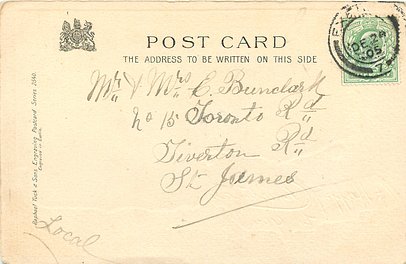 POST CARD
THE ADDRESS TO BE WRITTEN ON THIS SIDE
EXETER
DE 24
05
Mr & Mrs E. Bunclark
No 15 Toronto Rd
Tiverton Rd
St James
Local
Raphael Tuck & Sons' Engraving Postcard Series 2640.